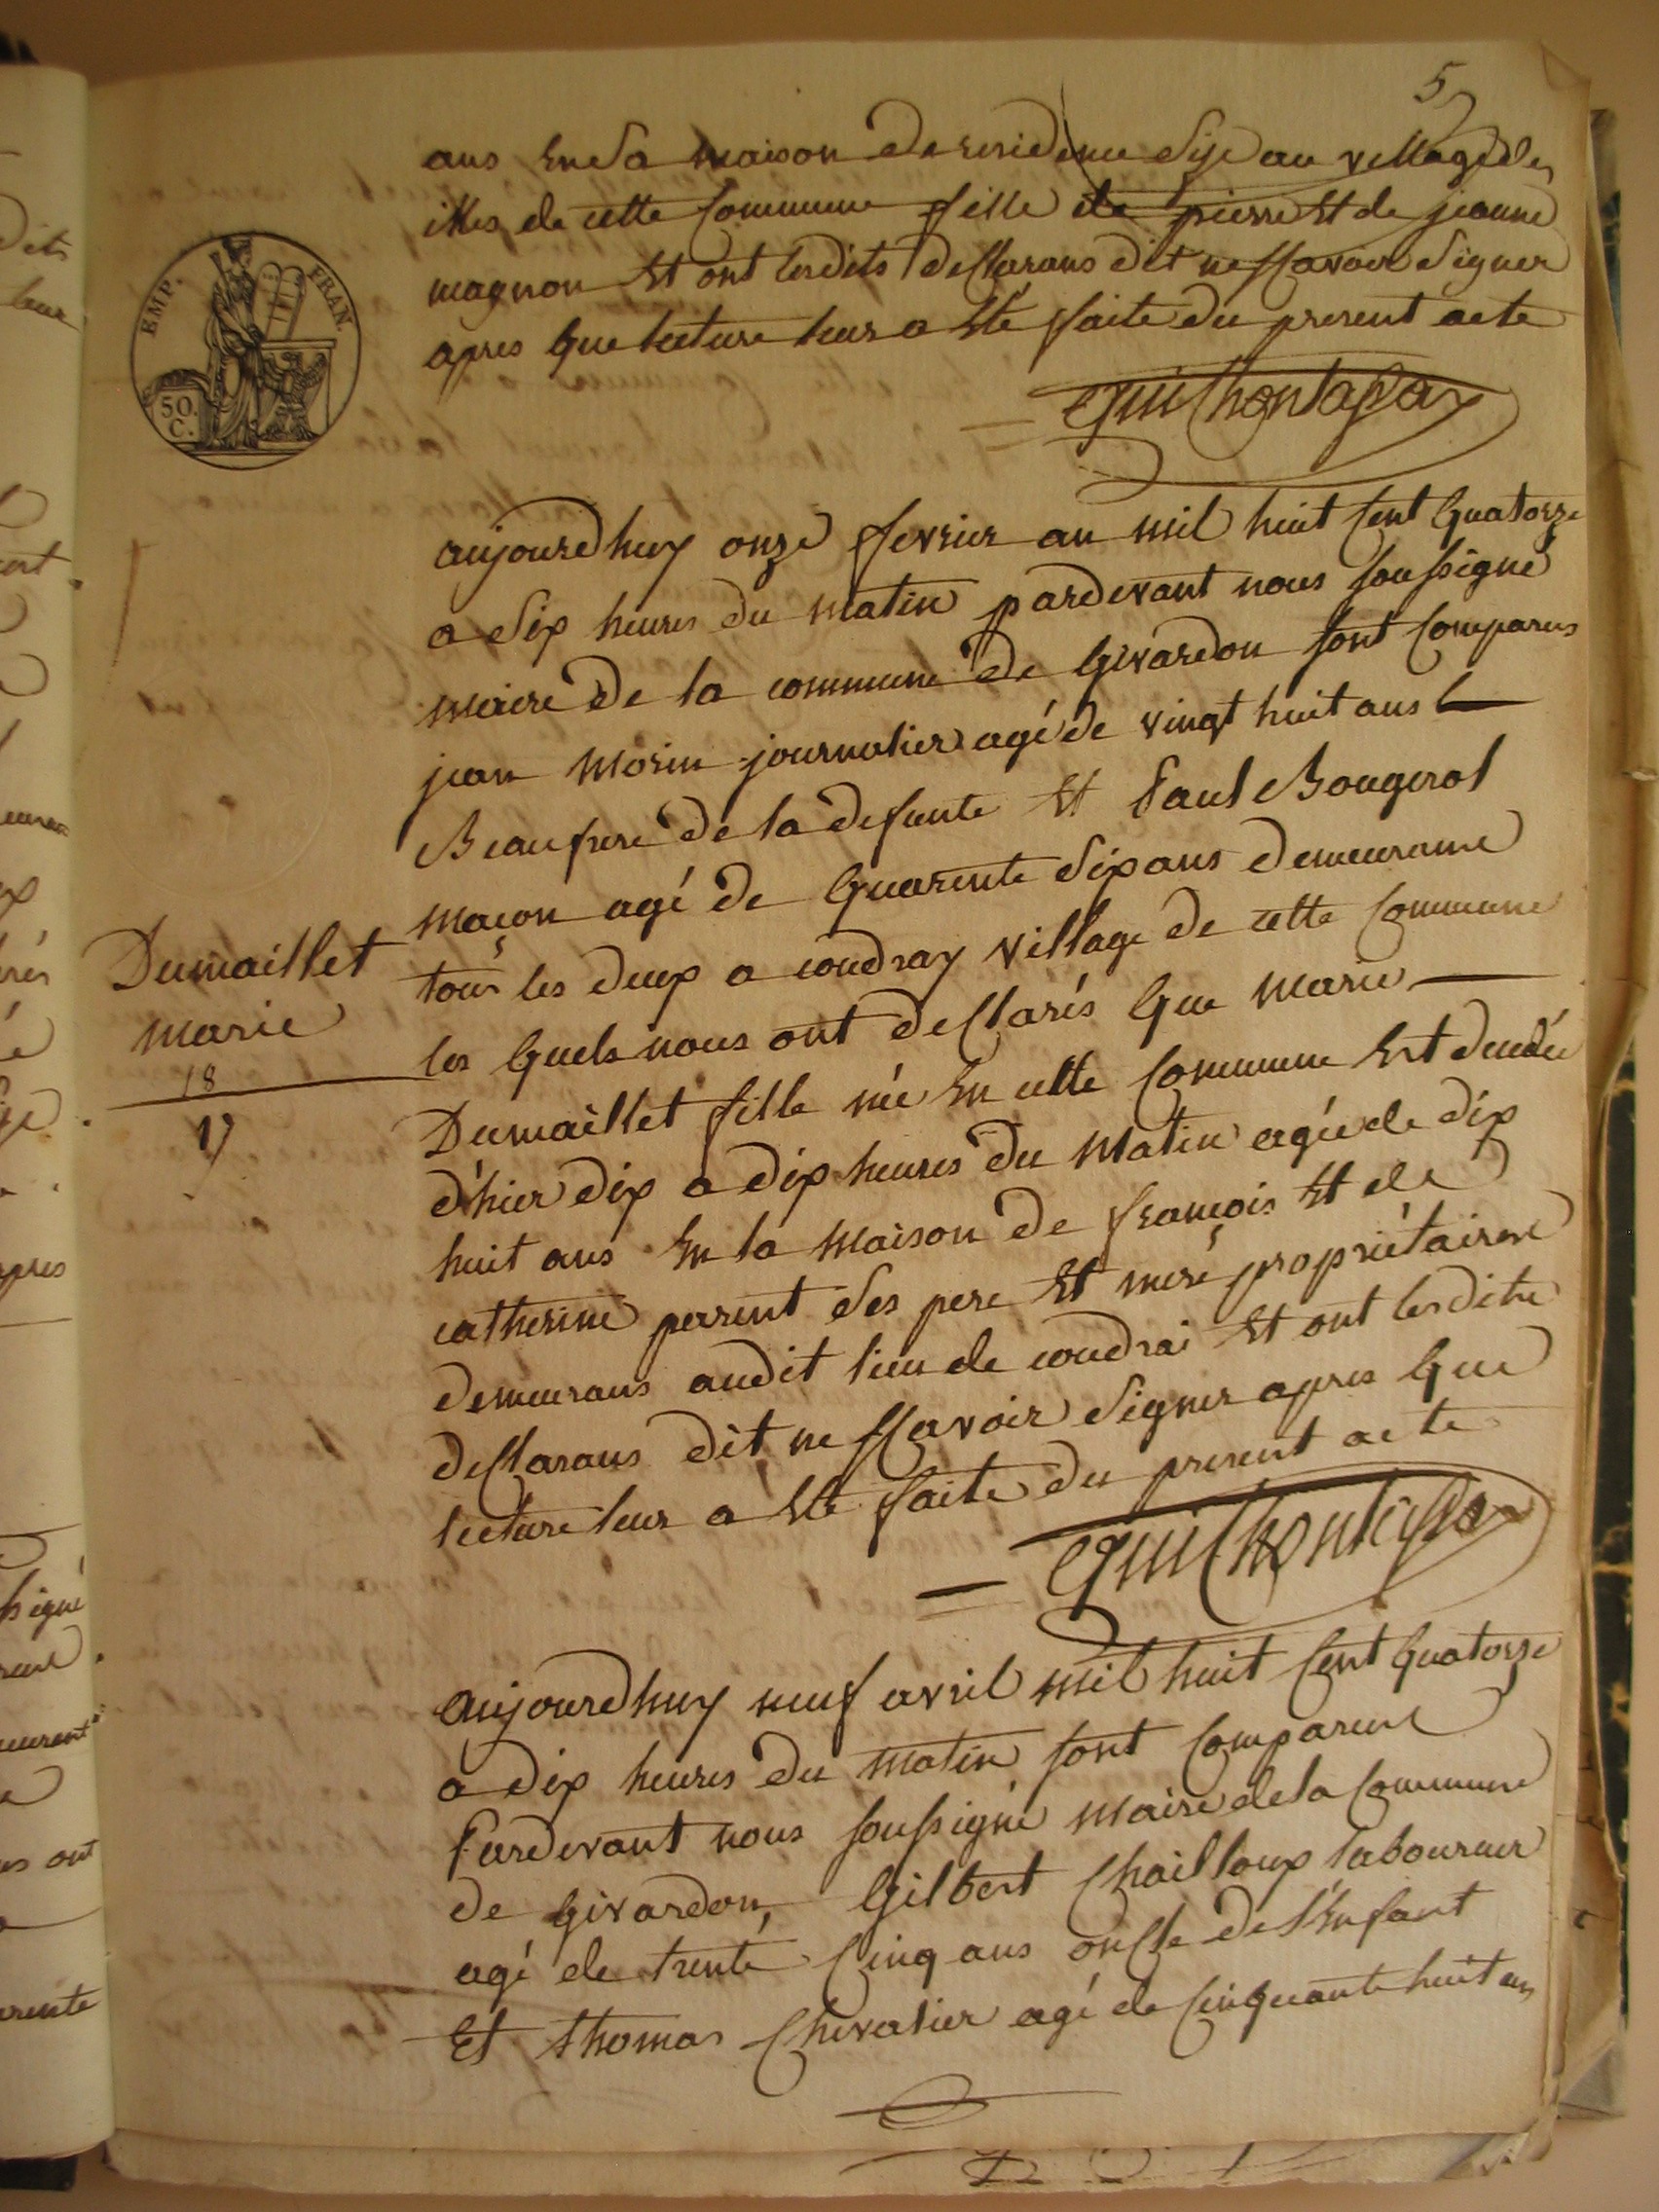 5
ans en sa maison de residence sise au village des
illes de cette commune fille de pierre et de jeanne
magnon et ont lesdits desclarans dit ne sçavoir signer
apres que lecture leur a ete faite du present acte
EMP. FRAN.
50.
C.
aujourdhuy onze fevrier an mil huit cent quatorze
a dix heures du matin pardevant nous soussigné
maire de la commune de givardon sont comparus
jean morin journalier agé de vingt huit ans
Beaufrere de la defunte et Paul Bougerol
maçon agé de quarente six ans demeurans
tous les deux a coudray village de cette commune
les quels nous ont desclarés que marie
Dumaillet fille née en cette commune est decedée
d'hier dix a dix heures du matin agée de dix
huit ans en la maison de françois et de
catherine perrent ses pere et mere propriétaires
demeurans audit lieu de coudrai et ont lesdits
desclarans dit ne sçavoir signer apres que
lecture leur a ete faite du present acte
Dumaillet
marie
18
17
aujourdhuy neuf avril mil huit cent quatorze
a dix heures du matin sont comparus
Pardevant nous soussigné maire de la commune
de givardon, gilbert Chailloux laboureur
agé de trente cinq ans oncle de l'enfant
Et thomas Chevalier agé de cinquante huit ans